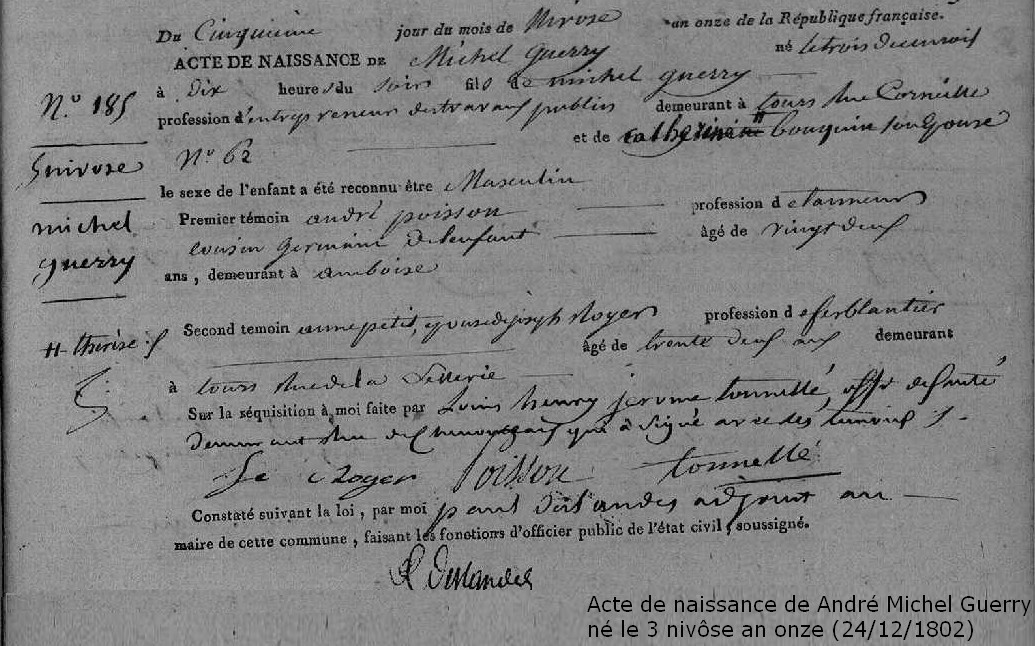 Du Cinquieme jour du mois de Nivose an onze de la République française.
ACTE DE NAISSANCE DE Michel Guerry né le trois du courant
à Dix heures du soir fils de michel guerry
N.o 185
profession d'entrepreneur destravaux publics demeurant à tours Rue Corneille
N.o 62 et de catherine bouquin son Epouse
5 nivose
le sexe de l'enfant a été reconnu être Masculin
michel
guerry
Premier témoin andré poisson profession d etanneur
cousin germain de lenfant âgé de vingt deux
ans, demeurant à amboise
# thérèse
Second temoin anne petit, epouse de joseph Royer profession d eferblantier
âgé de trente deux ans demeurant
à tours Rue de la Sellerie
Sur la réquisition à moi faite par Louis henry jerome tonnellé, offr de santé
demeurant Rue de qui a Signé avec les temoins
Royer Poisson tonnellé
Constaté suivant la loi, par moi paul deslandes adjoint au
maire de cette commune, faisant les fonctions d'officier public de l'état civil, soussigné.
P Deslandes
Acte de naissance de André Michel Guerry
né le 3 nivôse an onze (24/12/1802)